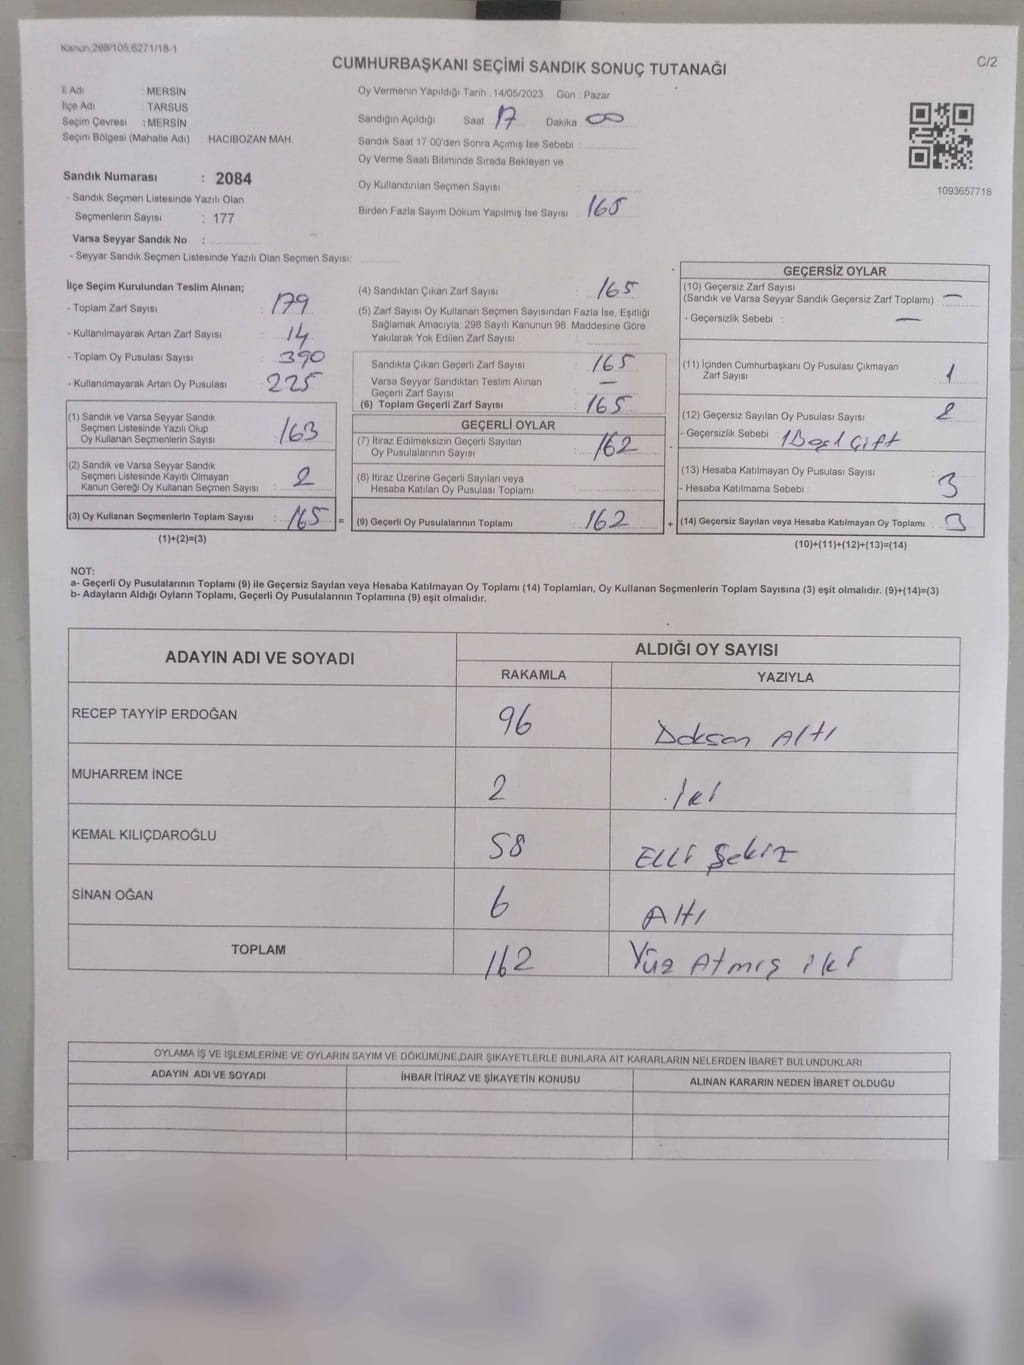 Kanun.298/105.6271/18-1
C/2
CUMHURBAŞKANI SEÇİMİ SANDIK SONUÇ TUTANAĞI
İl Adı : MERSİN
İlçe Adı : TARSUS
Seçim Çevresi : MERSİN
Seçim Bölgesi (Mahalle Adı) : HACIBOZAN MAH.
Sandık Numarası : 2084
- Sandık Seçmen Listesinde Yazılı Olan
Seçmenlerin Sayısı : 177
Varsa Seyyar Sandık No :
- Seyyar Sandık Seçmen Listesinde Yazılı Olan Seçmen Sayısı:
Oy Vermenin Yapıldığı Tarih : 14/05/2023 Gün : Pazar
Sandığın Açıldığı Saat 17 Dakika 00
Sandık Saat 17:00'den Sonra Açımış İse Sebebi :
Oy Verme Saati Bitiminde Sırada Bekleyen ve
Oy Kullandırılan Seçmen Sayısı :
Birden Fazla Sayım Döküm Yapılmış İse Sayısı : 165
1093657718
İlçe Seçim Kurulundan Teslim Alınan;
- Toplam Zarf Sayısı : 179
- Kullanılmayarak Artan Zarf Sayısı : 14
- Toplam Oy Pusulası Sayısı : 390
- Kullanılmayarak Artan Oy Pusulası : 225
(1) Sandık ve Varsa Seyyar Sandık
Seçmen Listesinde Yazılı Olup
Oy Kullanan Seçmenlerin Sayısı : 163
(2) Sandık ve Varsa Seyyar Sandık
Seçmen Listesinde Kayıtlı Olmayan
Kanun Gereği Oy Kullanan Seçmen Sayısı : 2
(3) Oy Kullanan Seçmenlerin Toplam Sayısı : 165 =
(1)+(2)=(3)
(4) Sandıktan Çıkan Zarf Sayısı : 165
(5) Zarf Sayısı Oy Kullanan Seçmen Sayısından Fazla İse, Eşitliği
Sağlamak Amacıyla, 298 Sayılı Kanunun 98. Maddesine Göre
Yakılarak Yok Edilen Zarf Sayısı :
Sandıkta Çıkan Geçerli Zarf Sayısı : 165
Varsa Seyyar Sandıktan Teslim Alınan
Geçerli Zarf Sayısı : —
(6) Toplam Geçerli Zarf Sayısı : 165
GEÇERLİ OYLAR
(7) İtiraz Edilmeksizin Geçerli Sayılan
Oy Pusulalarının Sayısı : 162
(8) İtiraz Üzerine Geçerli Sayılan veya
Hesaba Katılan Oy Pusulası Toplamı :
(9) Geçerli Oy Pusulalarının Toplamı : 162 +
GEÇERSİZ OYLAR
(10) Geçersiz Zarf Sayısı
(Sandık ve Varsa Seyyar Sandık Geçersiz Zarf Toplamı) : —
- Geçersizlik Sebebi : —
(11) İçinden Cumhurbaşkanı Oy Pusulası Çıkmayan
Zarf Sayısı : 1
(12) Geçersiz Sayılan Oy Pusulası Sayısı : 2
- Geçersizlik Sebebi : 1 Boş 1 Çift
(13) Hesaba Katılmayan Oy Pusulası Sayısı :
- Hesaba Katılmama Sebebi : 3
(14) Geçersiz Sayılan veya Hesaba Katılmayan Oy Toplamı : 3
(10)+(11)+(12)+(13)=(14)
NOT:
a- Geçerli Oy Pusulalarının Toplamı (9) ile Geçersiz Sayılan veya Hesaba Katılmayan Oy Toplamı (14) Toplamları, Oy Kullanan Seçmenlerin Toplam Sayısına (3) eşit olmalıdır. (9)+(14)=(3)
b- Adayların Aldığı Oyların Toplamı, Geçerli Oy Pusulalarının Toplamına (9) eşit olmalıdır.
ADAYIN ADI VE SOYADI ALDIĞI OY SAYISI
RAKAMLA YAZIYLA
RECEP TAYYİP ERDOĞAN 96 Doksan Altı
MUHARREM İNCE 2 İki
KEMAL KILIÇDAROĞLU 58 Elli Şekiz
SİNAN OĞAN 6 Altı
TOPLAM 162 Yüz Atmış iki
OYLAMA İŞ VE İŞLEMLERİNE VE OYLARIN SAYIM VE DÖKÜMÜNE DAİR ŞİKAYETLERLE BUNLARA AİT KARARLARIN NELERDEN İBARET BULUNDUKLARI
ADAYIN ADI VE SOYADI İHBAR İTİRAZ VE ŞİKAYETİN KONUSU ALINAN KARARIN NEDEN İBARET OLDUĞU